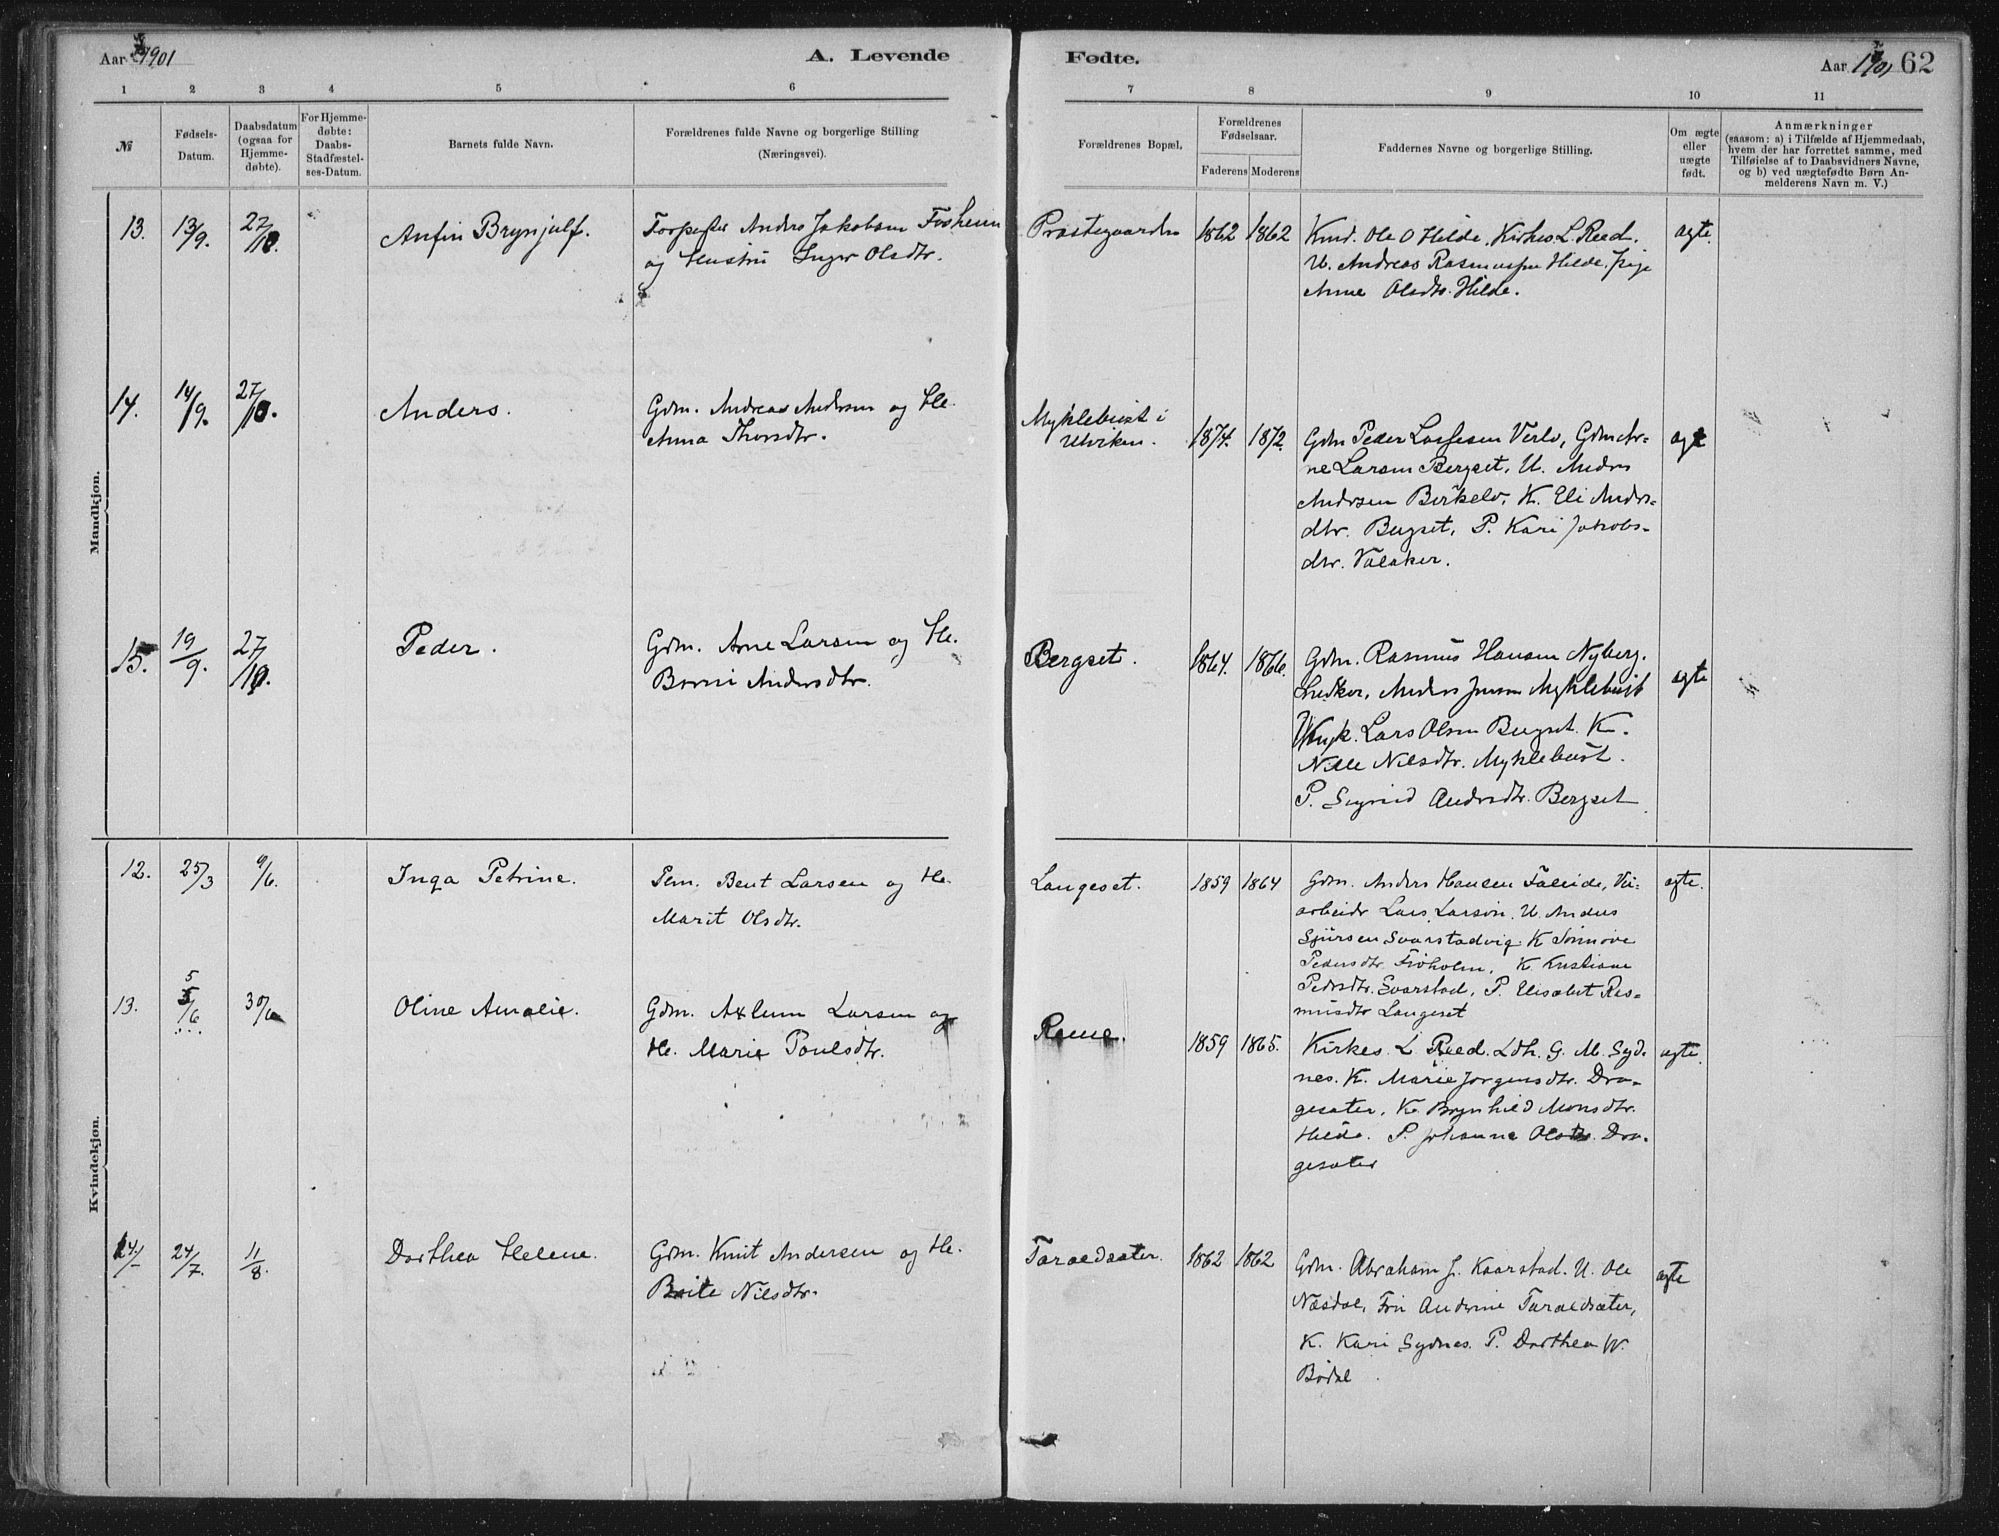 Aar 1901
A. Levende
Fødte.
Aar 1901
62
1 2 3 4 5 6 7 8 9 10 11
№
Fødsels-
Datum.
Daabsdatum
(ogsaa for
Hjemme-
døbte).
For Hjemme-
døbte:
Daabs-
Stadfæstel-
ses-Datum.
Barnets fulde Navn.
Forældrenes fulde Navne og borgerlige Stilling
(Næringsvei).
Forældrenes Bopæl.
Forældrenes
Fødselsaar.
Faderens Moderens
Faddernes Navne og borgerlige Stilling.
Om ægte
eller
uægte
født.
Anmærkninger
(saasom: a) i Tilfælde af Hjemmedaab,
hvem der har forrettet samme, med
Tilføielse af to Daabsvidners Navne,
og b) ved uægtefødte Børn An-
melderens Navn m. V.)
Mandkjøn.
13. 13/9. 27/10. Anfin Brynjulf.
Anders Jakobsen Fosheim
og Hustru Inger Olsdtr.
Præstegaarden 1862 1862
Ole O Hilde. Kirkes. L. Reed.
U. Andreas Rasmussen Hilde, pige
Anne Olsdtr. Hilde.
ægte.
14. 14/9. 27/10. Anders.
Gdm. Andreas Andersen og He.
Anna Thorsdtr.
Myklebust i
Utviken.
1874. 1872.
Gdm Peder Lassesen Verlo, Gdm Ar-
ne Larsen Bergset, U. Anders
Andersen Birkelo, K. Eli Anders-
dtr. Bergset, P. Kari Jakobs-
dtr. Valaker.
ægte
15. 19/9. 27/10. Peder.
Gdm. Arne Larsen og He.
Børni Andersdtr.
Bergset. 1864. 1866.
Gdm. Rasmus Hansen Nyberg.
Snedker, Anders Jensen Myklebust
Ungk. Lars Olsen Bergset. K.
Nille Nilsdtr. Myklebust.
P. Sigrid Andersdtr. Bergset
ægte
Kvindekjøn.
12. 25/3 9/6. Inga Petrine.
Pem. Bent Larsen og He.
Marit Olsdtr.
Langeset. 1859 1864
Gdm. Anders Hansen Faleide, Vei-
arbeidr Lars Larsen. U. Anders
Sjursen Svarstadvig. K Sønnøve
Pedersdtr. Froholm, K Kristiane
Pedrsdtr. Svarstad, P. Elisabet Ras-
musdtr Langeset
ægte.
13. 5/6 30/6 Oline Amalie.
Gdm. Larsen og
He. Marie Poulsdtr.
1859 1865.
Kirkes. L Reed. Ldh. G. M. Syd-
nes. K. Marie Jørgensdtr. Dra-
gesæter, K. Brynhild Monsdtr.
Hilde. P. Johanne Olsdtr. Dra-
gesæter
ægte.
14. 24/7. 11/8. Dorthea Helene.
Gdm. Knut Andersen og He.
Brite Nilsdtr.
Taraldsæter. 1862 1862
Gdm. Abraham J. Kaarstad. U. Ole
Næsdal, Fru Anderine Taraldsæter,
K. Kari Sydnes. P. Dorthea W.
Bødal
ægte